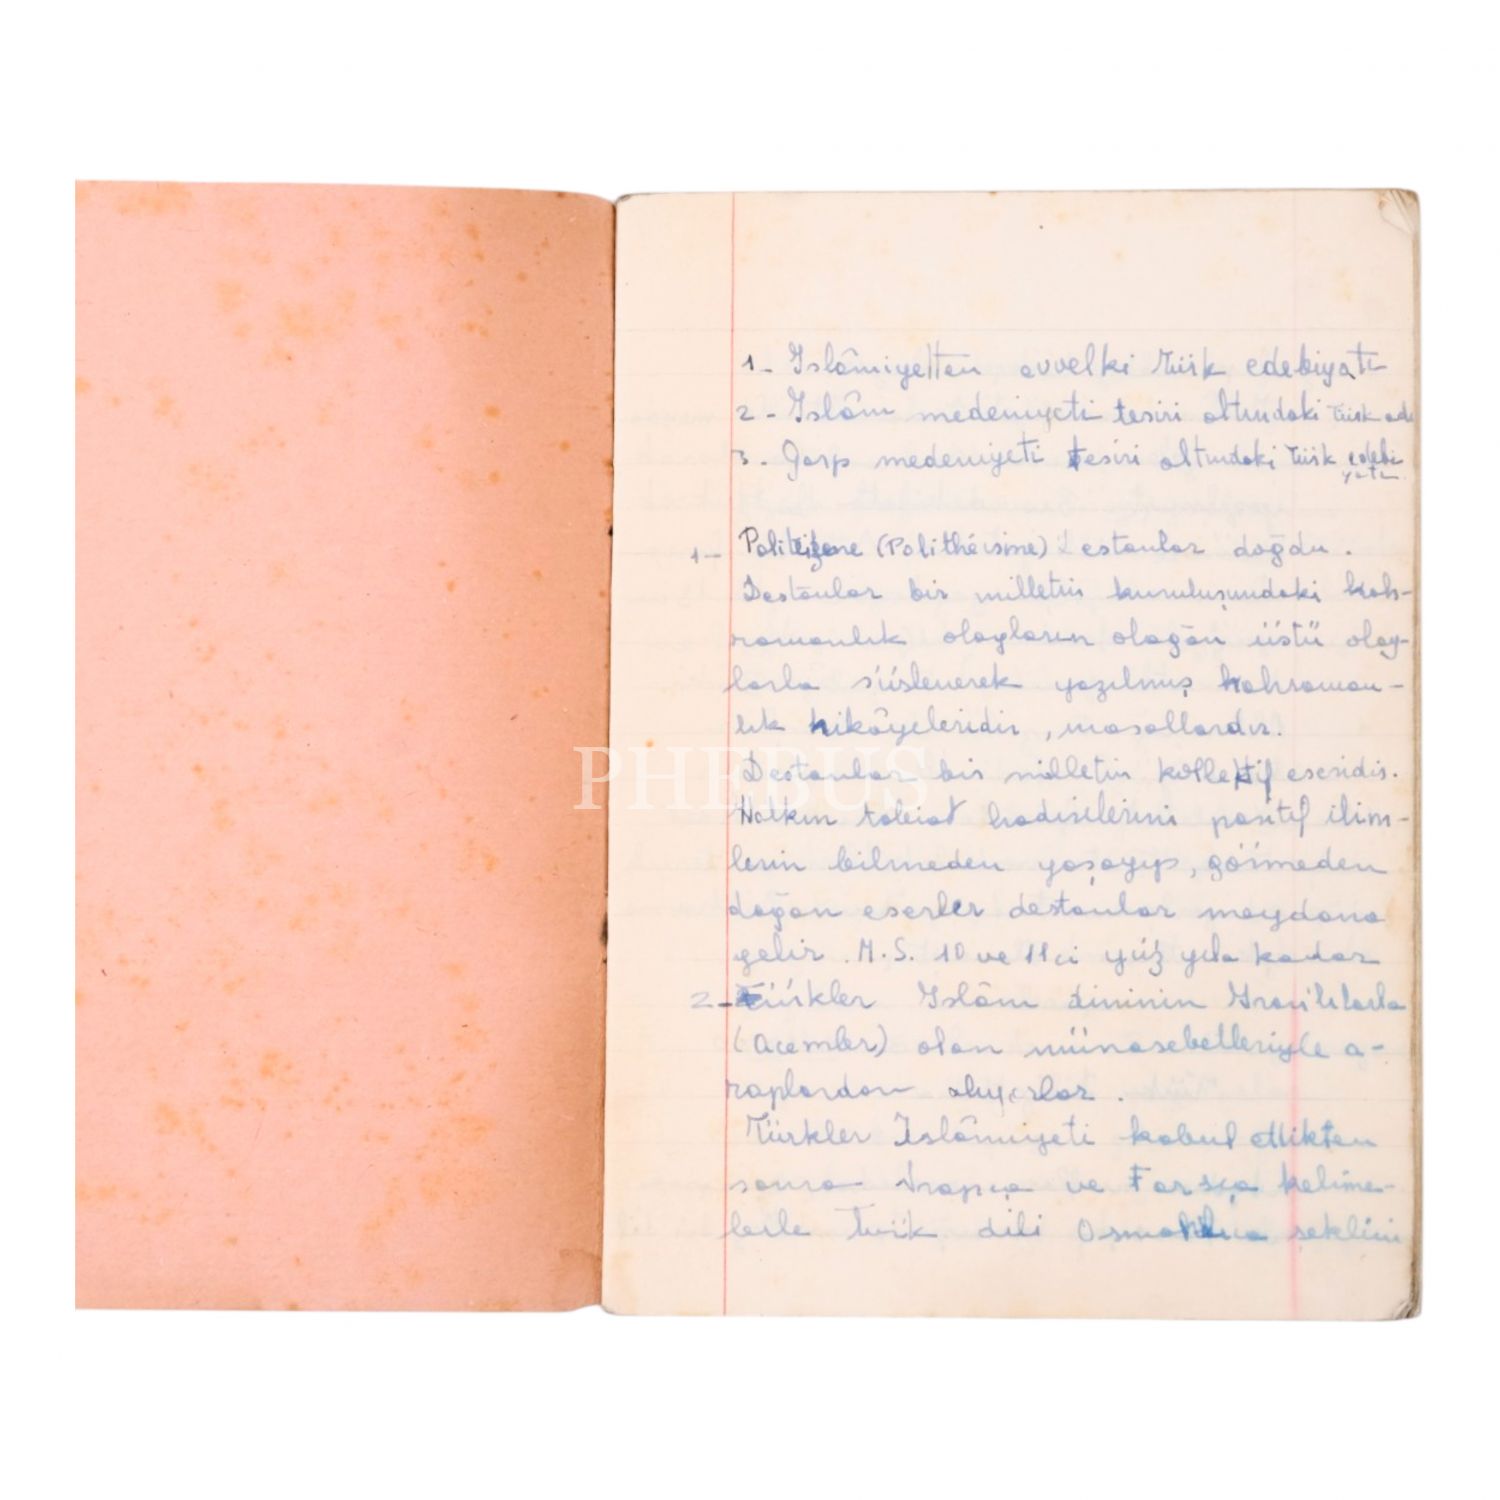 1- İslâmiyetten evvelki Türk edebiyatı
2- İslâm medeniyeti tesiri altındaki Türk ede
3- Garp medeniyeti tesiri altındaki Türk edebi
yatı
1- (Polithéisme) Destanlar doğdu.
Destanlar bir milletin kuruluşundaki kah-
ramanlık olayların olağan üstü olay-
larla süslenerek yazılmış kahraman-
lık hikâyeleridir, masallardır.
PHEBUS
Destanlar bir milletin kollektif eseridir.
Halkın tabiat hadiselerini pozitif ilim-
lerin bilmeden yaşayıp, görmeden
doğan eserler destanlar meydana
gelir. M.S. 10 ve 11ci yüz yıla kadar
2- Türkler İslâm dininin İran'lılarla
(acemler) olan münasebetleriyle a-
raplardan alıyorlar.
Türkler İslâmiyeti kabul ettikten
sonra Arapça ve Farsça kelime-
lerle Türk dili Osmanlıca şeklini